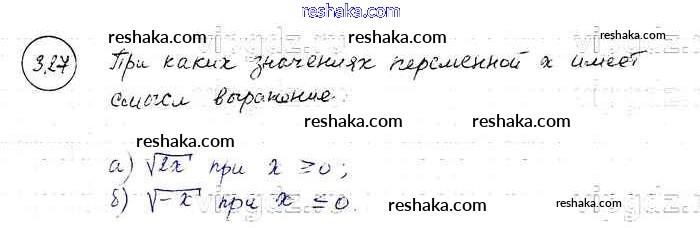 reshaka.com
reshaka.com reshaka.com reshaka.com
3.27 При каких значениях переменной x имеет
смысл выражение:
reshaka.com reshaka.com reshaka.com
а) √2x при x ≥ 0;
б) √-x при x ≤ 0.
reshaka.com reshaka.com